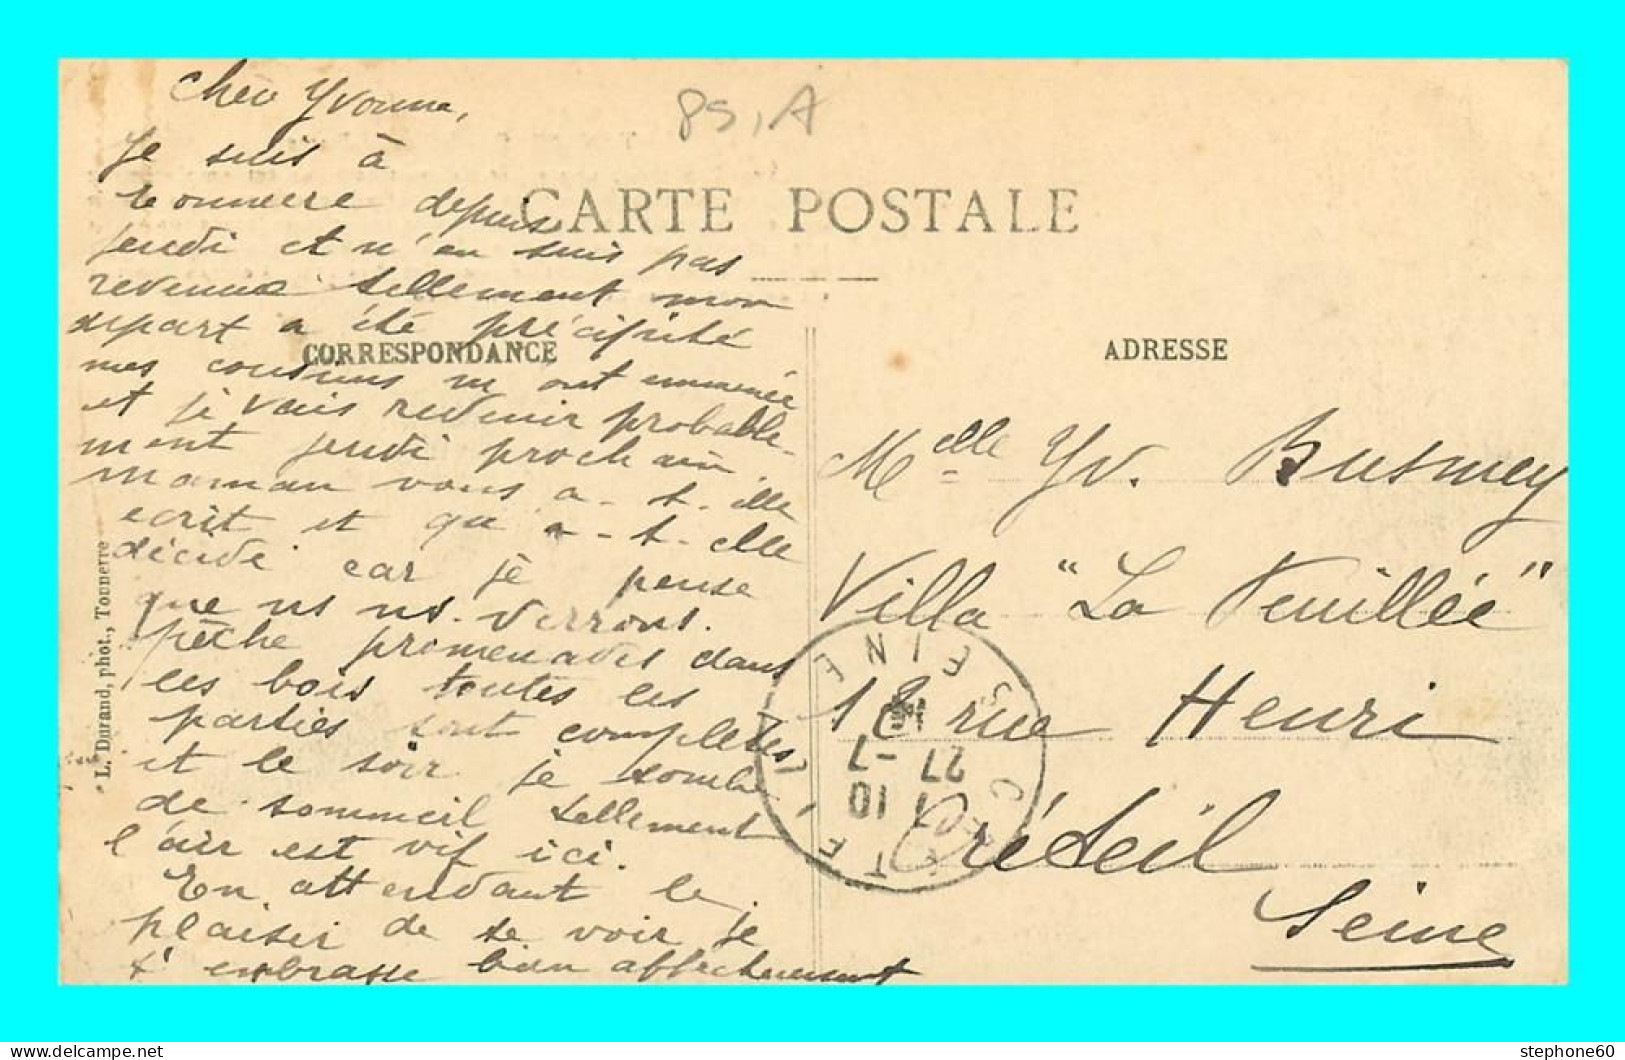 Chère Yvonne,
85, A
Je suis à
tonnerre depuis
CARTE POSTALE
jeudi et n'en suis pas
revenue tellement mon
depart a été précipité
CORRESPONDANCE
mes cousins m'ont emmenée
et je vais revenir probable-
ment jeudi prochain
maman vous a-t-elle
ecrit et qu'a-t-elle
décidé car je pense
que ns ns. verrons.
pêche promenades dans
les bois toutes les
parties sont complètes
et le soir je tombe
de sommeil tellement
l'air est vif ici.
En attendant le
plaisir de te voir je
t'embrasse bien affectueusement
L. Durand, phot., Tonnerre
ADRESSE
Melle Yv. Busmey
Villa "La Feuillée"
18 rue Henri
Créteil
Seine
CRÉTEIL
SEINE
27 -7
10
stephone60
delcampe.net